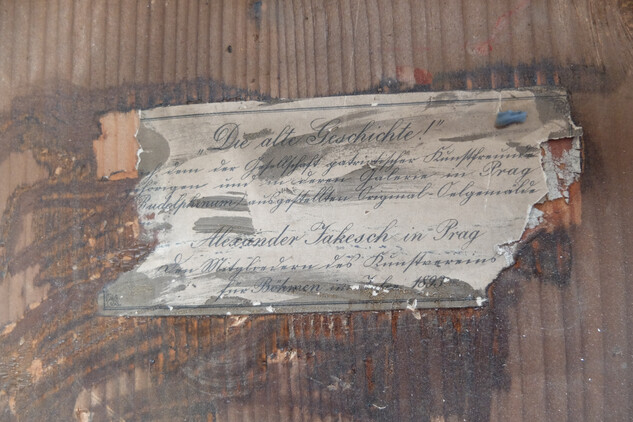 „Die alte Geschichte!"
dem der Gesellschaft patriotischer Kunstfreunde
und in deren Galerie in Prag
Rudolphinum) ausgestellten Original-Oelgemälde
Alexander Jakesch in Prag
Den Mitgliedern des Kunstvereins
für Böhmen im Jahre